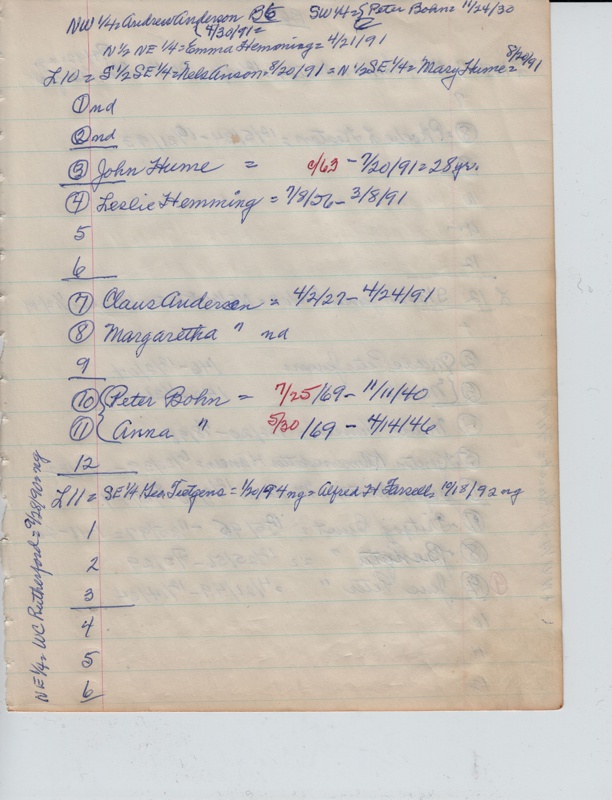 NW 1/4 = Andrew Anderson B6 SW 1/4 = { Peter Bohn = 11/24/30
{ 4/30/91 =
N 1/2 NE 1/4 = Emma Hemming = 4/21/91
L10 = S 1/2 SE 1/4 = Nels Anson = 8/20/91 = N 1/2 SE 1/4 = Mary Hume = 8/20/91
① nd
② nd
③ John Hume = c/63 - 7/20/91 = 28 yr.
④ Leslie Hemming = 7/8/56 - 3/8/91
5
6
⑦ Claus Anderson = 4/2/27 - 4/24/91
⑧ Margaretha " nd
9
⑩ { Peter Bohn = 7/25/69 - 11/11/40
⑪ { Anna " 5/20/69 - 4/14/46
12
L11 = SE 1/4 Geo. Tietgens = 1/20/94 ng = Alfred H 10/18/92 ng
1
2
3
4
5
6
NE 1/4 = WC Rutherford = 9/28/92 ng